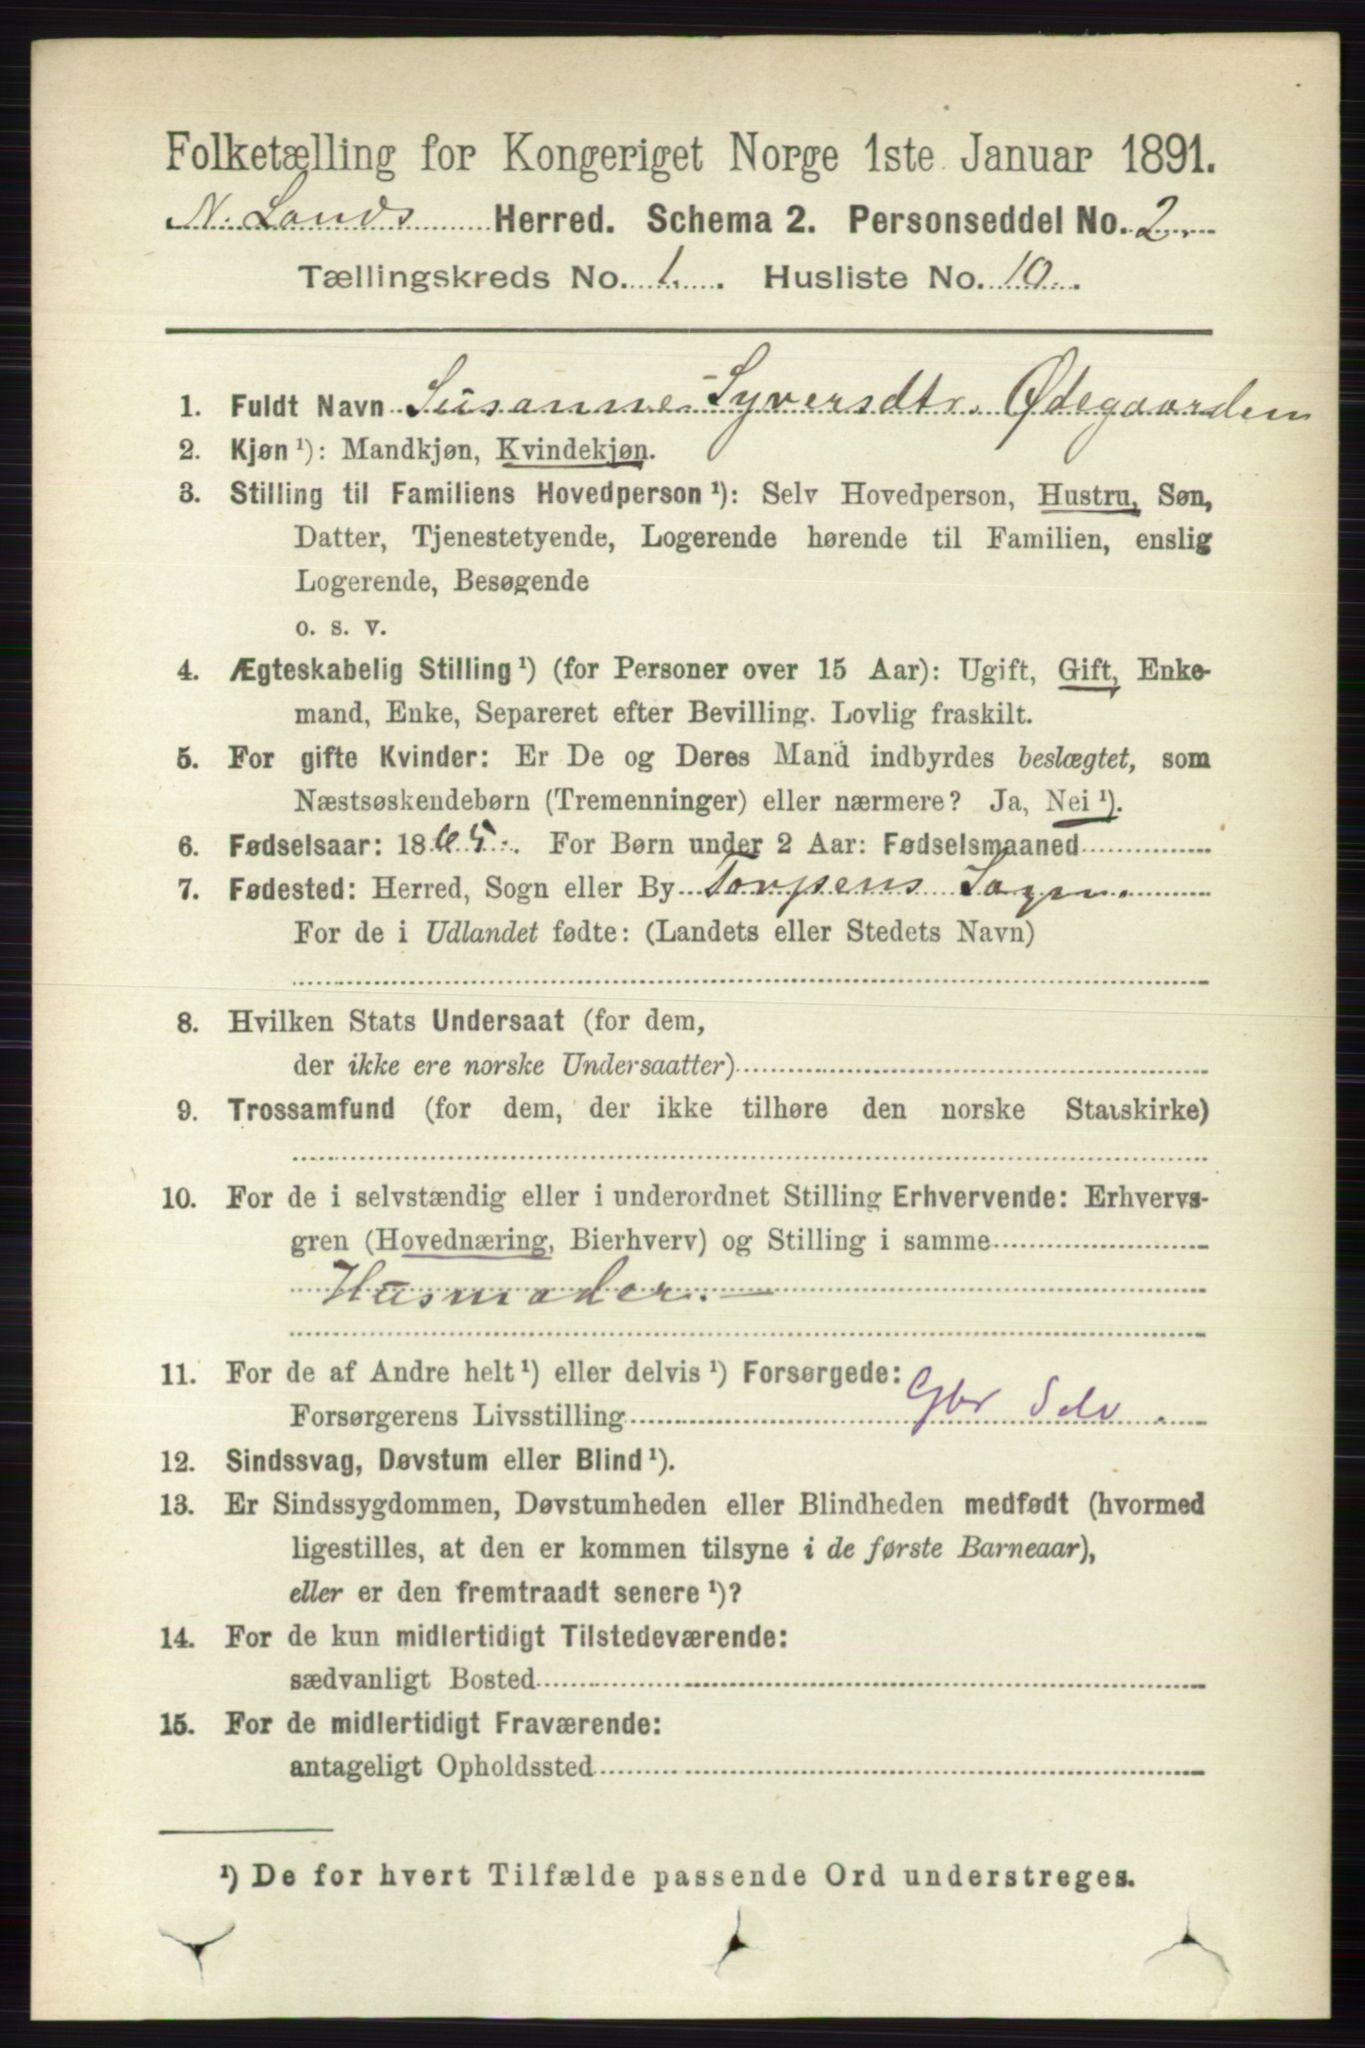 Folketælling for Kongeriget Norge 1ste Januar 1891.
N. Lands Herred. Schema 2. Personseddel No. 2.
Tællingskreds No. 1. Husliste No. 10.
1. Fuldt Navn Susanne Syversdtr. Ødegaarden
2. Kjøn ¹): Mandkjøn, Kvindekjøn.
3. Stilling til Familiens Hovedperson ¹): Selv Hovedperson, Hustru, Søn,
Datter, Tjenestetyende, Logerende hørende til Familien, enslig
Logerende, Besøgende
o. s. v.
4. Ægteskabelig Stilling ¹) (for Personer over 15 Aar): Ugift, Gift, Enke-
mand, Enke, Separeret efter Bevilling. Lovlig fraskilt.
5. For gifte Kvinder: Er De og Deres Mand indbyrdes beslægtet, som
Næstsøskendebørn (Tremenninger) eller nærmere? Ja, Nei ¹).
6. Fødselsaar: 1865. For Børn under 2 Aar: Fødselsmaaned
7. Fødested: Herred, Sogn eller By Torpens Sogn.
For de i Udlandet fødte: (Landets eller Stedets Navn)
8. Hvilken Stats Undersaat (for dem,
der ikke ere norske Undersaatter)
9. Trossamfund (for dem, der ikke tilhøre den norske Statskirke)
10. For de i selvstændig eller i underordnet Stilling Erhvervende: Erhvervs-
gren (Hovednæring, Bierhverv) og Stilling i samme
Husmoder.
11. For de af Andre helt ¹) eller delvis ¹) Forsørgede:
Forsørgerens Livsstilling Gbr Selv.
12. Sindssvag, Døvstum eller Blind ¹).
13. Er Sindssygdommen, Døvstumheden eller Blindheden medfødt (hvormed
ligestilles, at den er kommen tilsyne i de første Barneaar),
eller er den fremtraadt senere ¹)?
14. For de kun midlertidigt Tilstedeværende:
sædvanligt Bosted
15. For de midlertidigt Fraværende:
antageligt Opholdssted
¹) De for hvert Tilfælde passende Ord understreges.